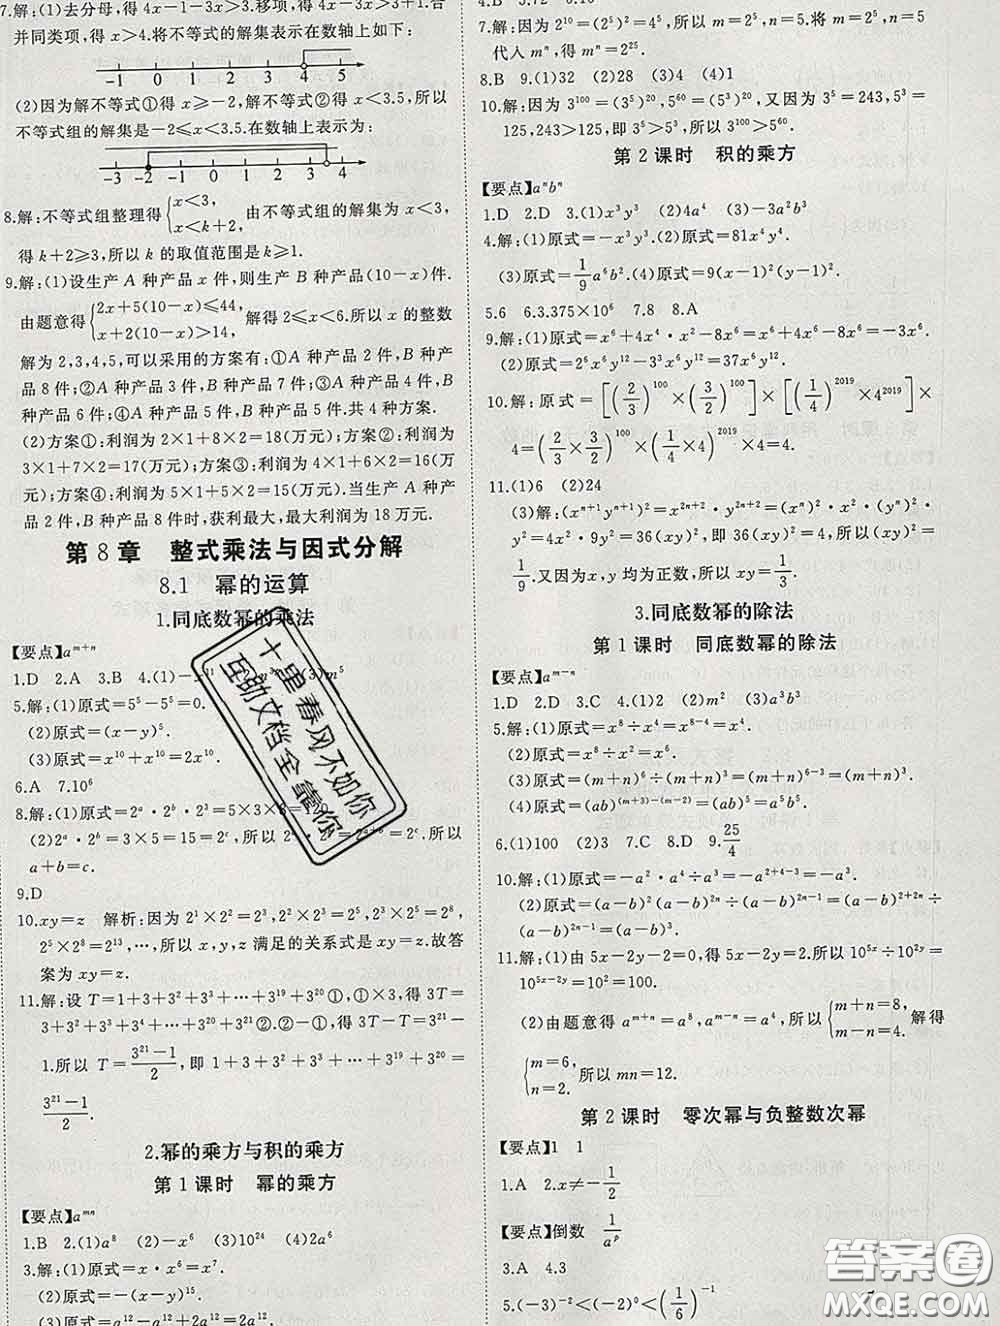 7.解:(1)去分母,得 4x-1-3x>3,移项,得 4x-3x>3+1.合
并同类项,得 x>4.将不等式的解集表示在数轴上如下:
-1 0 1 2 3 4 5
(2)因为解不等式①得 x≥-2,解不等式②得 x<3.5,所以
不等式组的解集是-2≤x<3.5.在数轴上表示为:
-3 -2 -1 0 1 2 3 4
8.解:不等式组整理得{x<3, x<k+2, 由不等式组的解集为 x<3,
得 k+2≥3,所以 k 的取值范围是 k≥1.
9.解:(1)设生产 A 种产品 x 件,则生产 B 种产品(10-x)件.
由题意得{2x+5(10-x)≤44, x+2(10-x)>14, 解得 2≤x<6.所以 x 的整数
解为 2,3,4,5,可以采用的方案有:①A 种产品 2 件,B 种产
品 8 件;②A 种产品 3 件,B 种产品 7 件;③A 种产品 4 件,
B 种产品 6 件;④A 种产品 5 件,B 种产品 5 件.共 4 种方案.
(2)方案①:利润为 2×1+8×2=18(万元);方案②:利润为
3×1+7×2=17(万元);方案③:利润为 4×1+6×2=16(万
元);方案④:利润为 5×1+5×2=15(万元).当生产 A 种产
品 2 件,B 种产品 8 件时,获利最大,最大利润为 18 万元.
第 8 章 整式乘法与因式分解
8.1 幂的运算
1.同底数幂的乘法
【要点】a^{m+n}
1.D 2.A 3.B 4.(1)-x^{11} (3)m^5
5.解:(1)原式=5^5-5^5=0.
(2)原式=(x-y)^5.
(3)原式=x^{10}+x^{10}=2x^{10}.
6.A 7.10^6
8.解:(1)原式=2^a·2^b=5×3
(2)2^a·2^b=3×5=15=2^c,所以 2^a·2^b=2^{a+b}=2^c.所以
a+b=c.
9.D
10.xy=z 解析:因为 2^1×2^2=2^3,2^2×2^3=2^5,2^3×2^5=2^8,
2^5×2^8=2^{13},…,所以 x,y,z 满足的关系式是 xy=z.故答
案为 xy=z.
11.解:设 T=1+3+3^2+3^3+…+3^{19}+3^{20}①,①×3,得 3T=
3+3^2+3^3+…+3^{19}+3^{20}+3^{21}②.②-①,得 3T-T=3^{21}-
1.所以 T=\frac{3^{21}-1}{2},即 1+3+3^2+3^3+…+3^{19}+3^{20}=
\frac{3^{21}-1}{2}.
2.幂的乘方与积的乘方
第 1 课时 幂的乘方
【要点】a^{mn}
1.B 2.(1)a^8 (2)-x^6 (3)10^{24} (4)2a^6
3.解:(1)原式=x·x^6=x^7.
(2)原式=-(x-y)^{15}.
(3)原式=a^{12}-a^{12}+2a^{12}=2a^{12}.
7.解:因为 2^{10}=(2^5)^2=m^n,所以 m=2^5,n=2.将 m=2^5,n=5
代入 m^n,得 m^n=2^{25}.
8.B 9.(1)32 (2)28 (3)4 (4)1
10.解:因为 3^{100}=(3^5)^{20},5^{60}=(5^3)^{20},又因为 3^5=243,5^3=
125,243>125,即 3^5>5^3,所以 3^{100}>5^{60}.
第 2 课时 积的乘方
【要点】a^nb^n
1.D 2.D 3.(1)x^3y^3 (2)4a^4 (3)-3a^2b^3
4.解:(1)原式=-x^3y^3.(2)原式=81x^4y^4.
(3)原式=\frac{1}{9}a^6b^2.(4)原式=9(x-1)^2(y-1)^2.
5.6 6.3.375×10^6 7.8 8.A
9.解:(1)原式=x^6+4x^4·x^2-8x^6=x^6+4x^6-8x^6=-3x^6.
(2)原式=2^6x^6y^{12}-3^3x^6y^{12}=37x^6y^{12}.
10.解:原式=[(\frac{2}{3})^{100}×(\frac{3}{2})^{100}]×[(\frac{1}{4})^{2019}×4^{2019}]×
4=(\frac{2}{3}×\frac{3}{2})^{100}×(\frac{1}{4}×4)^{2019}×4=4.
11.(1)6 (2)24
(3)解:(x^{n+1}y^{n+1})^2=x^{2n+2}y^{2n+2}=(x^n)^2·x^2·(y^n)^2·
y^2=4×9×(xy)^2=36(xy)^2,即 36(xy)^2=4,所以(xy)^2=
\frac{1}{9}.又因为 x,y 均为正数,所以 xy=\frac{1}{3}.
3.同底数幂的除法
第 1 课时 同底数幂的除法
【要点】a^{m-n}
1.D 2.D 3.C 4.(1)2 (2)m^2 (3)a^3b^3
5.解:(1)原式=x^8÷x^4=x^{8-4}=x^4.
(2)原式=x^8÷x^2=x^6.
(3)原式=(m+n)^6÷(m+n)^3=(m+n)^{6-3}=(m+n)^3.
(4)原式=(ab)^{(m+3)-(m-2)}=(ab)^5=a^5b^5.
6.(1)100 (2)3 7.C 8.D 9.\frac{25}{4}
10.解:(1)原式=-a^2·a^4÷a^3=-a^{2+4-3}=-a^3.
(2)原式=(a-b)^2(a-b)^{2n}÷(a-b)^{2n-1}=(a-b)^{2+2n-
2n+1}=(a-b)^3.
11.解:(1)由 5x-2y-2=0,得 5x-2y=2.所以 10^{5x}÷10^{2y}=
10^{5x-2y}=10^2=100.
(2)由题意得 a^{m+n}=a^8,a^{m-n}=a^4,所以{m+n=8, m-n=4. 解得
{m=6, n=2. 所以 mn=12.
第 2 课时 零次幂与负整数次幂
【要点】1 1
1.A 2.x≠-\frac{1}{2}
【要点】倒数 \frac{1}{a^p}
3.A 4.3
5.(-3)^{-2}<(-2)^0<(\frac{1}{6})^{-1}
十里春风不如你
互助文档全靠你
答案圈
MXQE.COM